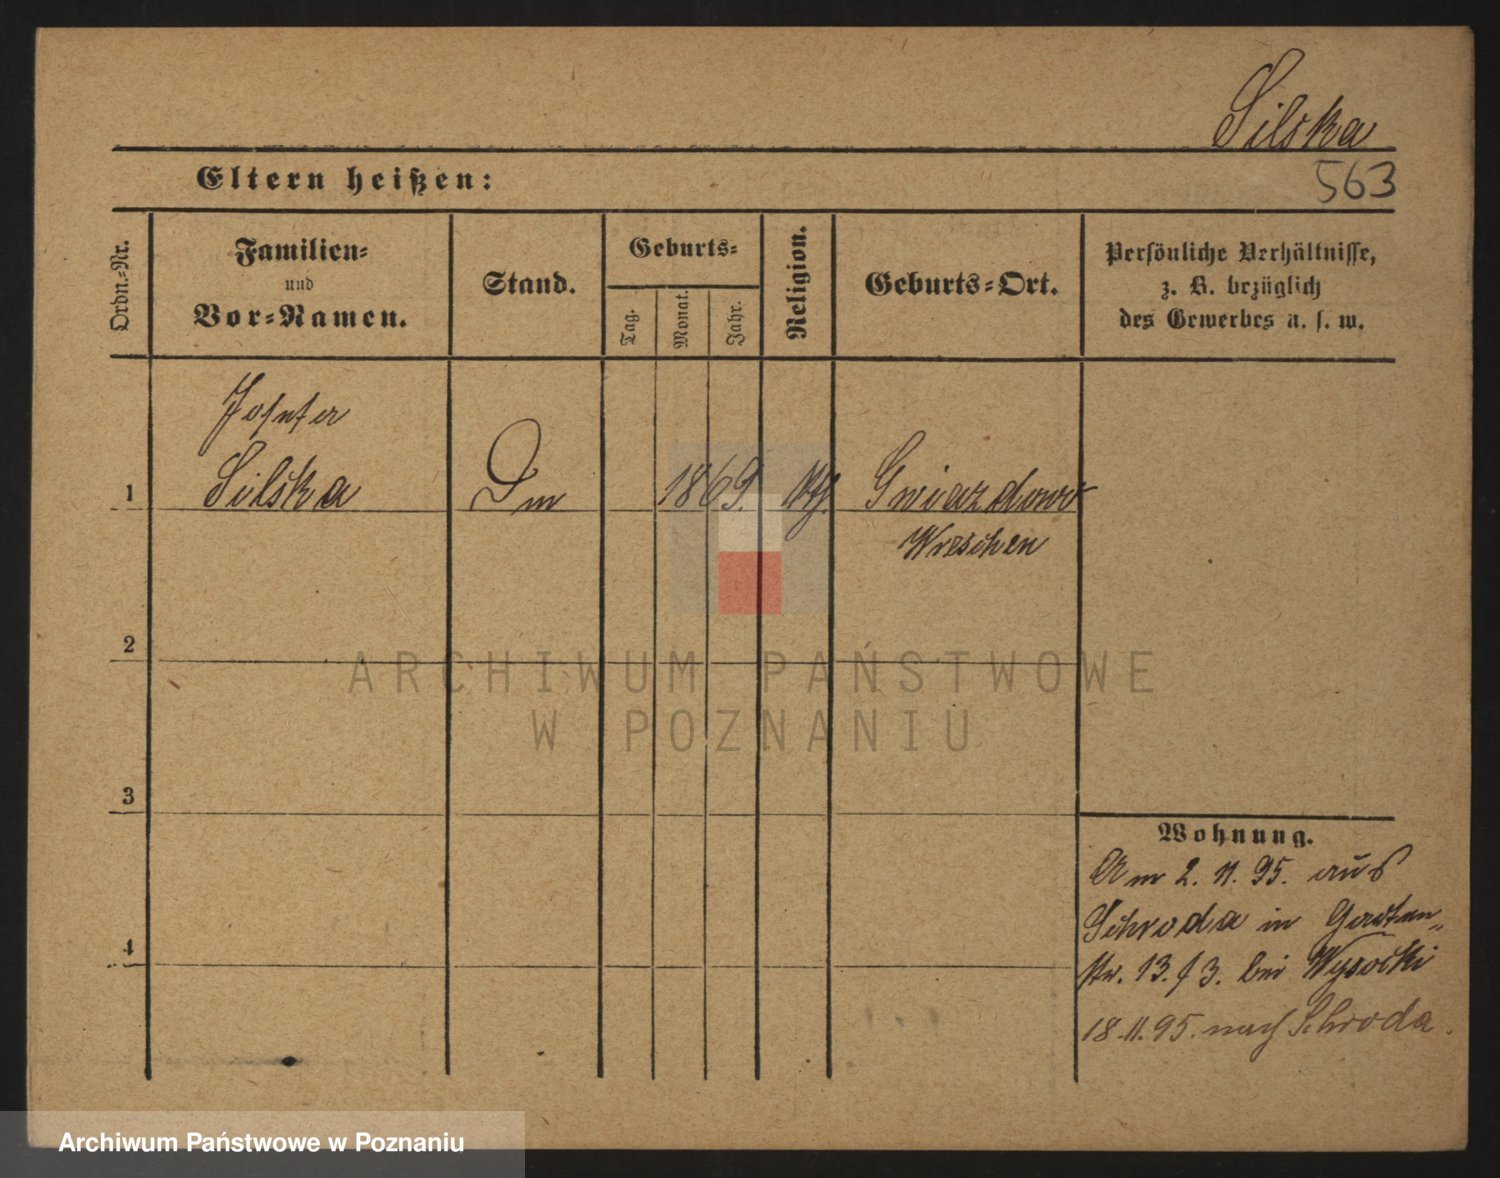 Silska
563
Eltern heißen:
Ordn.-Nr.
Familien-
und
Vor-Namen.
Stand.
Geburts-
Tag.
Monat.
Jahr.
Religion.
Geburts-Ort.
Persönliche Verhältnisse,
z. B. bezüglich
des Gewerbes u. s. w.
Josefa
1 Silska Dm 1869. kth. Gwiazdowo
Wreschen
2
3
4
Wohnung.
Am 2. 11. 95. aus
Schroda in Garten-
str. 13. f 3. bei Wysocki
18.11.95. nach Schroda.
ARCHIWUM PAŃSTWOWE
W POZNANIU
Archiwum Państwowe w Poznaniu